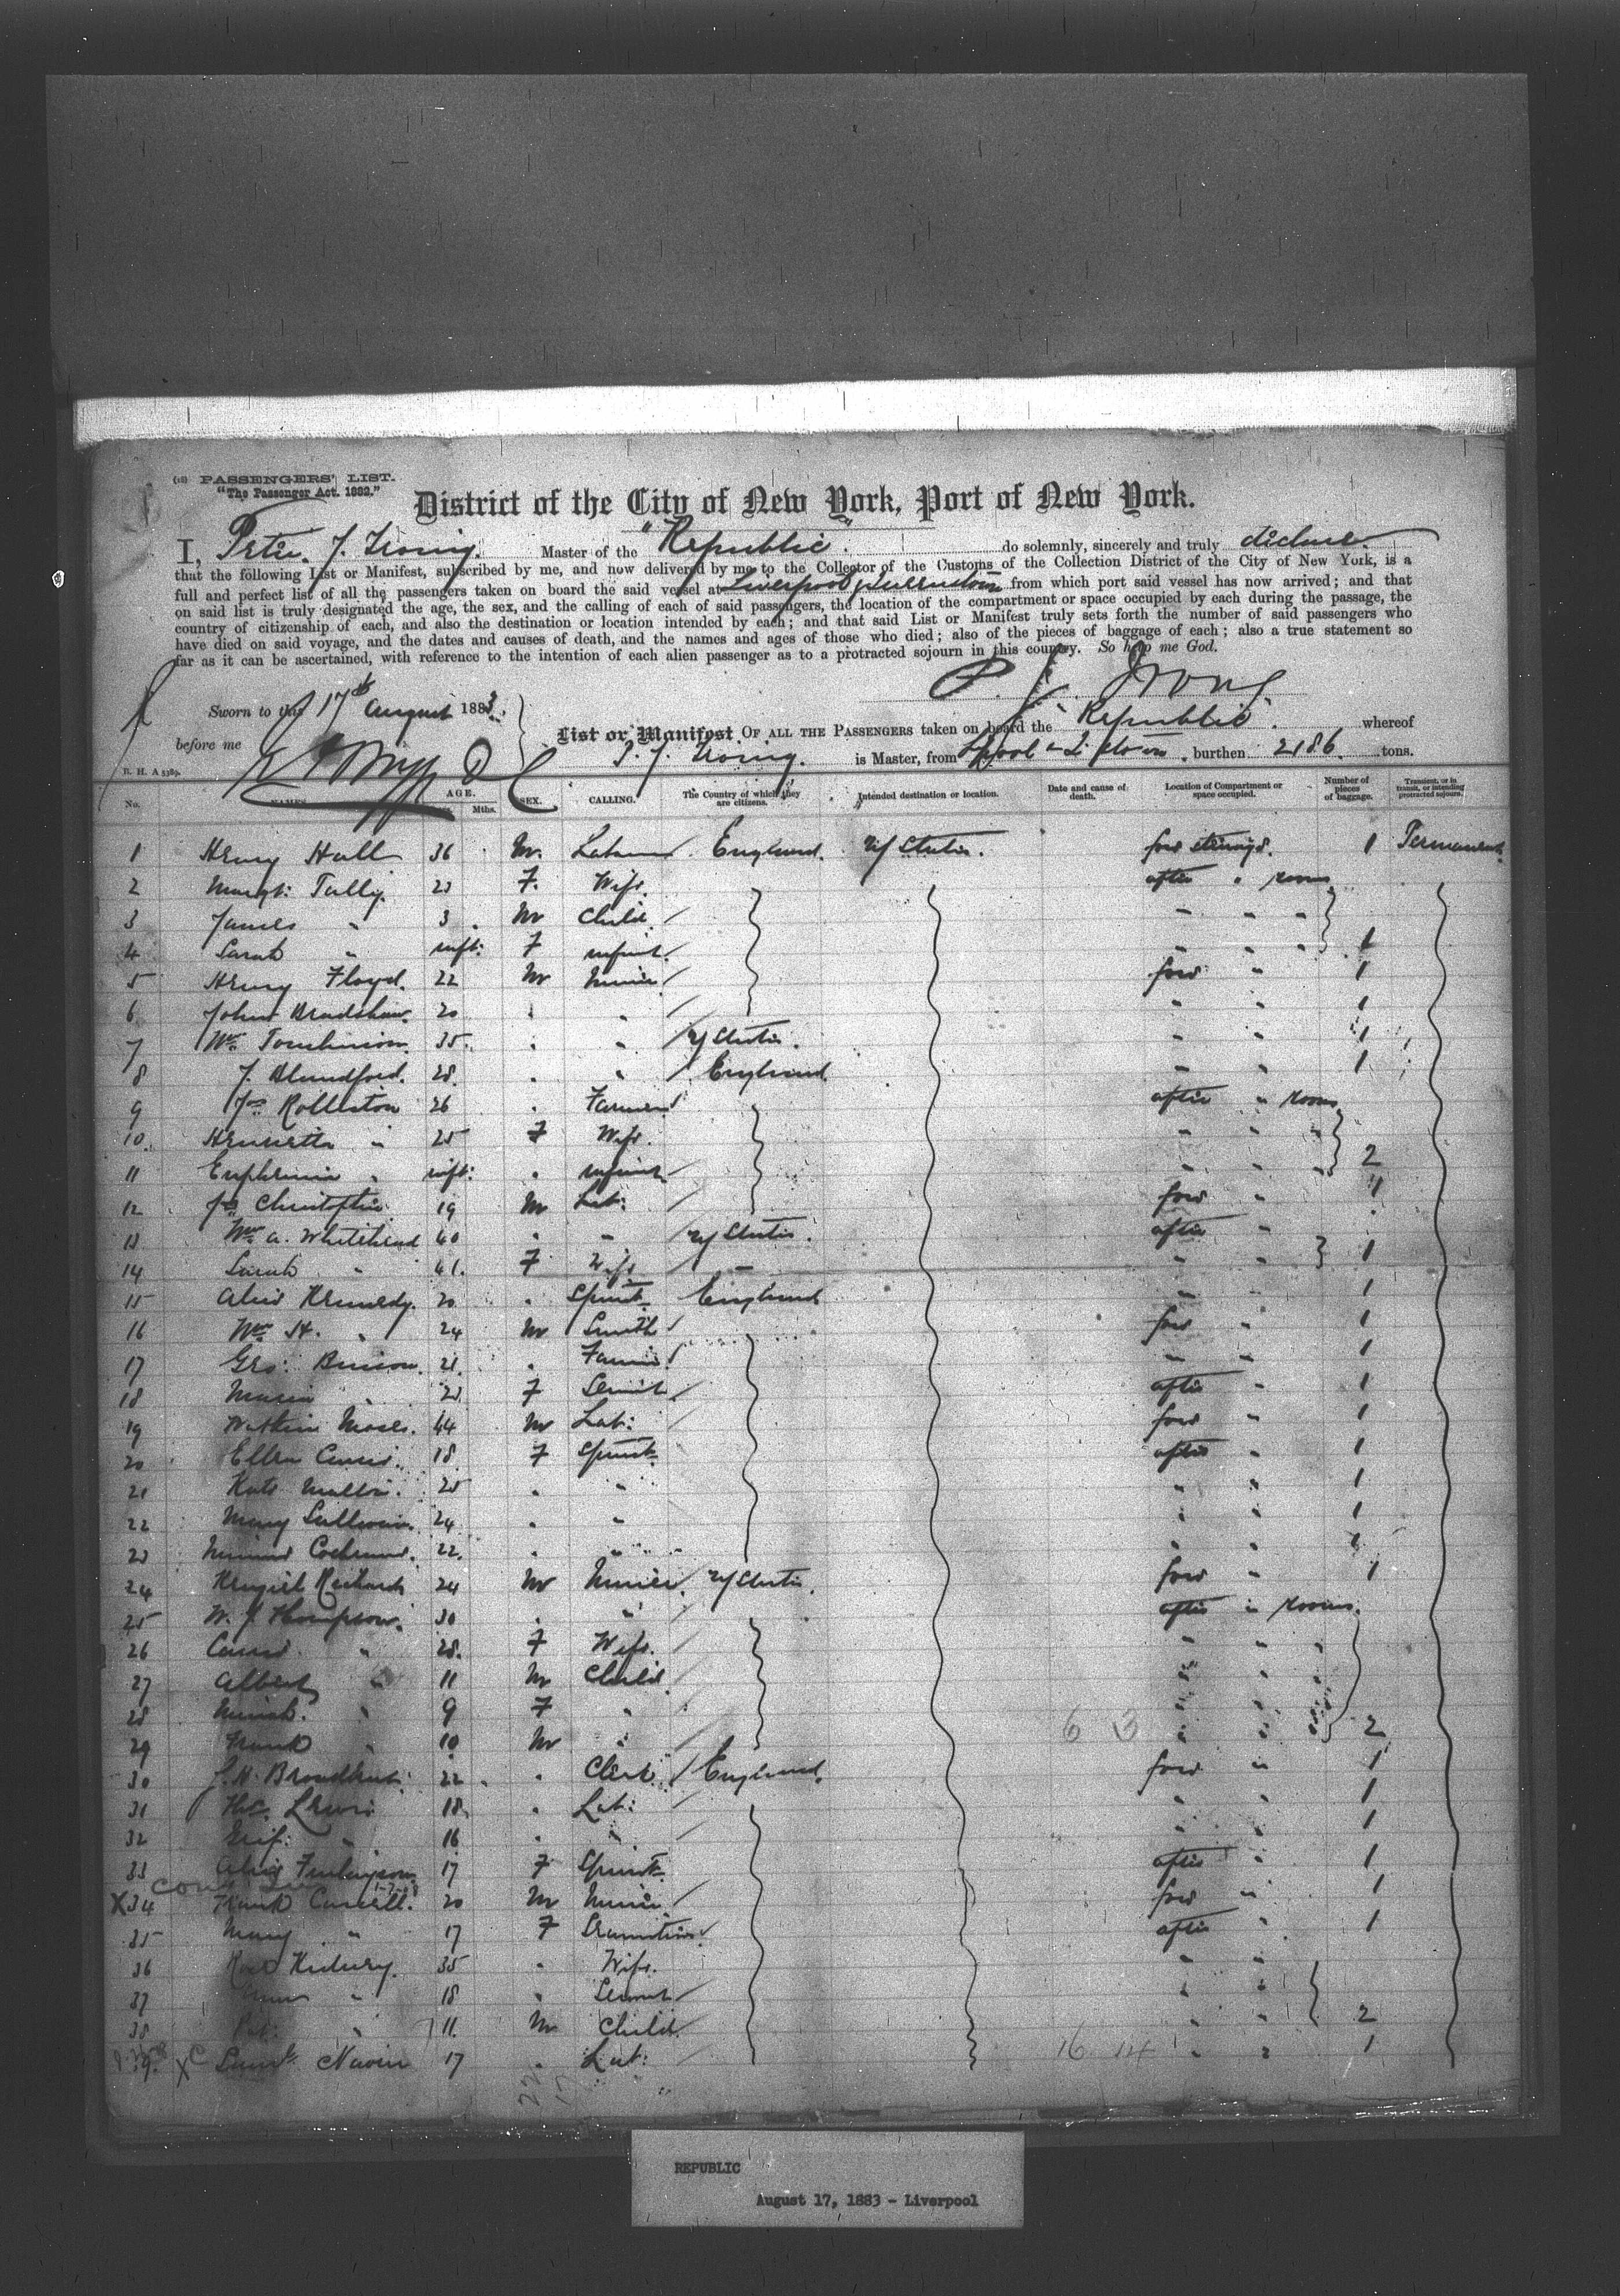 (18) PASSENGERS' LIST.
"The Passenger Act. 1882."
District of the City of New York, Port of New York.
I, Peter J. Irving. Master of the "Republic". do solemnly, sincerely and truly declare
that the following List or Manifest, subscribed by me, and now delivered by me to the Collector of the Customs of the Collection District of the City of New York, is a
full and perfect list of all the passengers taken on board the said vessel at Liverpool & Queenstown from which port said vessel has now arrived; and that
on said list is truly designated the age, the sex, and the calling of each of said passengers, the location of the compartment or space occupied by each during the passage, the
country of citizenship of each, and also the destination or location intended by each; and that said List or Manifest truly sets forth the number of said passengers who
have died on said voyage, and the dates and causes of death, and the names and ages of those who died; also of the pieces of baggage of each; also a true statement so
far as it can be ascertained, with reference to the intention of each alien passenger as to a protracted sojourn in this country. So help me God.
P. J. Irving.
Sworn to this 17th August 1883.
before me
List or Manifest OF ALL THE PASSENGERS taken on board the "Republic". whereof
P. J. Irving. is Master, from L'pool & Q'stown, burthen 2186 tons.
R. H. A 5369.
No. NAMES AGE. Mths. SEX. CALLING. The Country of which they are citizens. Intended destination or location. Date and cause of death. Location of Compartment or space occupied. Number of pieces of baggage. Transient, or in transit, or intending protracted sojourn.
1 Henry Hall 36 M. Labourer England. U/States. for'd steerage. 1 Permanent.
2 Margt: Tully. 23 F. Wife. after " rooms
3 James " 3 M Child. " " "
4 Sarah " inft: F infant. " " " 1
5 Henry Floyd. 22 M Miner for'd " 1
6 John Bradshaw. 20 " " " " 1
7 Wm. Tomlinson. 35. " " U/States. " " 1
8 J. Blundford. 28. " " England. " " 1
9 Jas Rolleston 26 " Farmer after " rooms
10. Henrietta " 25 F Wife. " " "
11 Euphemia " inft: " infant " " " 2
12 Christopher 19 M Lab: for'd " 1
13 Wm. A. Whitehead 40 " " U/States. after "
14 Sarah " 41. F Wife " " " 1
15 Alice Kennedy. 20 " Spinst. England " " 1
16 Wm. H. " 24 M Smith for'd " 1
17 Geo: 21. " Farmer " " 1
18 Maria " 23. F Servt. after " 1
19 Moses. 44 M Lab: for'd " 1
20 Ellen 18 F Spinst. after " 1
21 Kate 25 " " " " 1
22 Mary Sullivan. 24 " " " " 1
23 Cochrane. 22. " " " " 1
24 Richards 24 M Miner. U/States. for'd " 1
25 W. J. Thompson. 30 " " after " rooms.
26 " 28. F Wife. " " "
27 Albert " 11 M Child " " "
28 " 9 F " " " "
29 Frank " 10 M " 6 3 " " 2
30 J. H. Broadhurst 22 " Clerk England. for'd " 1
31 Lewis 18. " Lab: " " 1
32 " 16 " " " " 1
33 Alice 17 F Spinst. after " 1
X34 Frank 20 M Miner for'd " 1
35 Mary " 17 F after " 1
36 35 " Wife. " "
37 " 18 " Servant " "
38 " 11. M Child. " " 2
39. XC Saml. 17 " Lab: 16 14 " " 1
22 17
REPUBLIC
August 17, 1883 - Liverpool